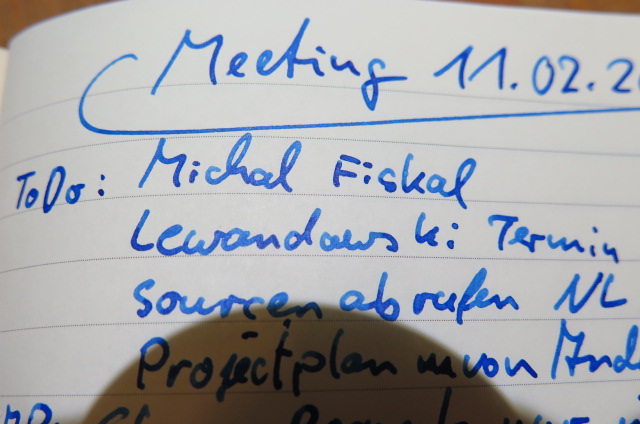 Meeting 11.02.2
ToDo: Michal Fiskal
Lewandowski: Termin
Sourcen abrufen NL
Projectplan von